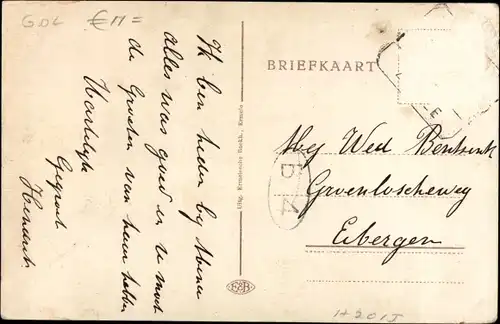 GDL € 11=
Ik ben heden bij Mina
alles was goed en u moet
de Groeten van heun hebben
Hartelijk
Gegroet
Hendrik
Uitg. Ermelosche Boekh., Ermelo
BRIEFKAART
Weg Wed Bentsink
Groenloscheweg
Eibergen